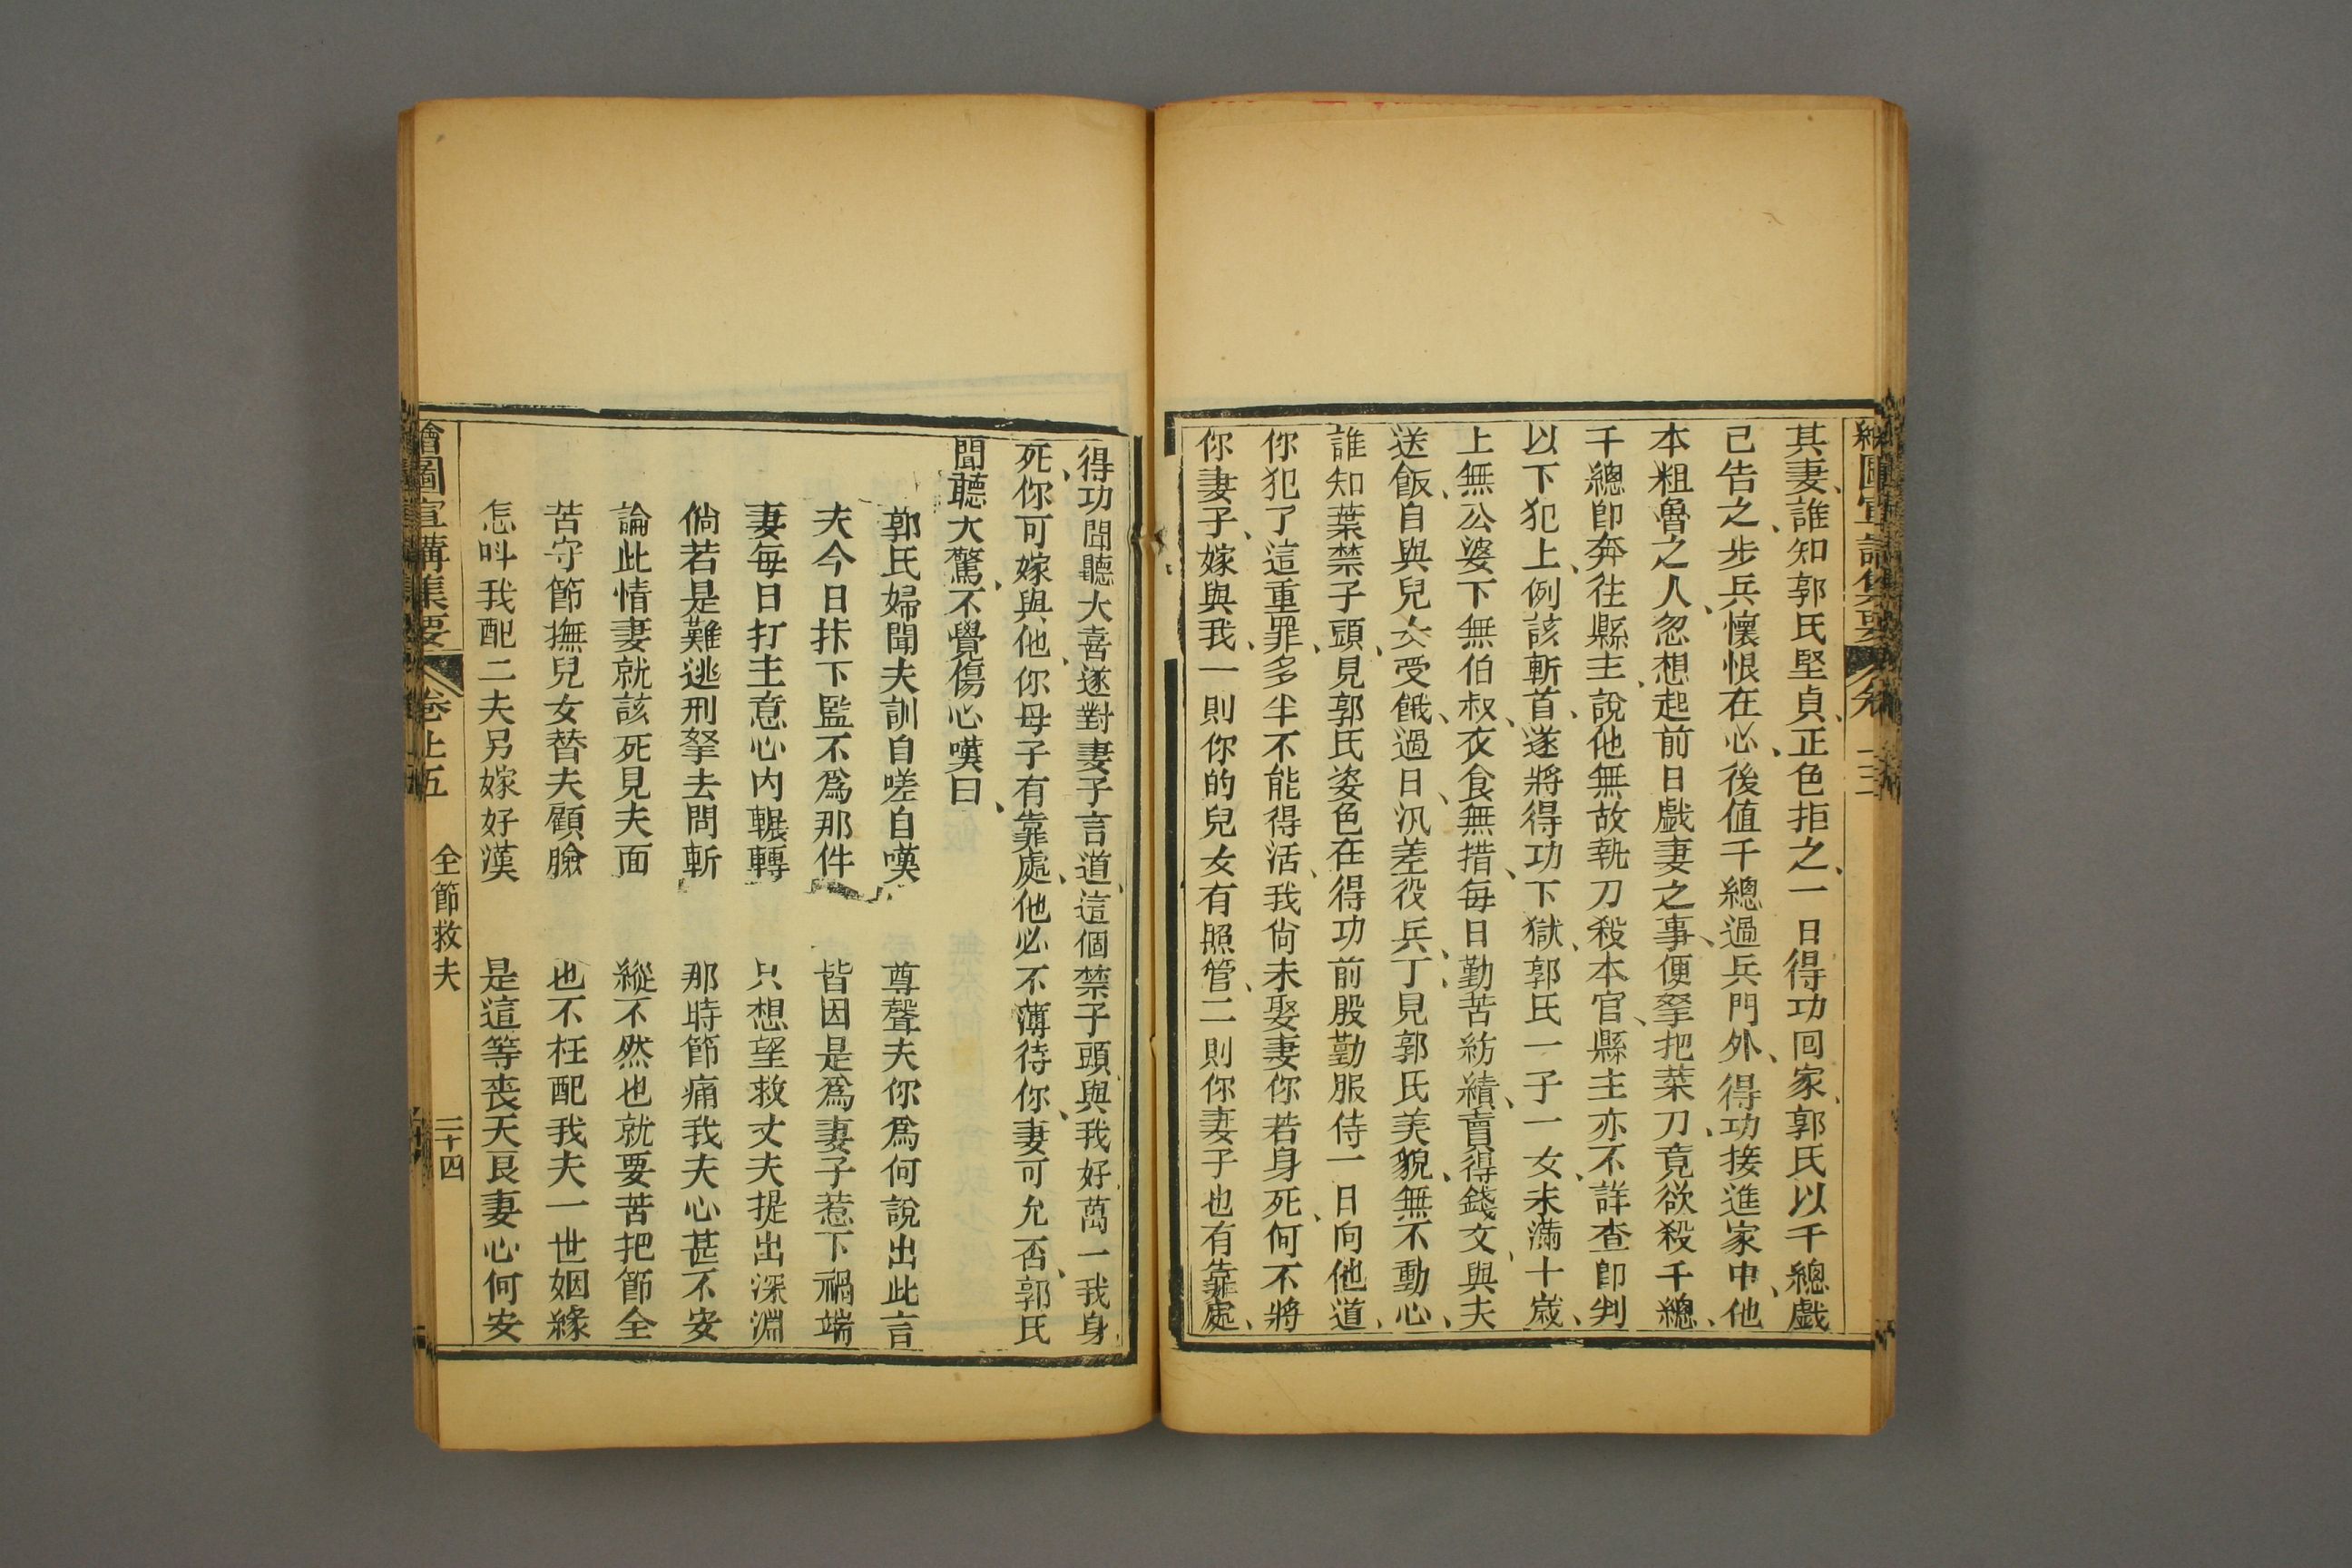 其妻、誰知郭氏堅貞、正色拒之、一日得功回家、郭氏以千總戲
己告之、步兵懷恨在心、後值千總過兵門外、得功接進家中、他
本粗魯之人、忽想起前日戲妻之事、便拏把菜刀、竟欲殺千總、
千總卽奔往縣主、說他無故執刀殺本官、縣主亦不詳查卽判
以下犯上、例該斬首、遂將得功下獄、郭氏一子一女、未滿十歲、
上無公婆、下無伯叔、衣食無措、每日勤苦紡績、賣得錢文、與夫
送飯、自與兒女受餓、過日、汛差役兵、丁見郭氏美貌、無不動心、
誰知葉禁子頭、見郭氏姿色在得功前殷勤服侍一日向他道、
你犯了這重罪、多半不能得活、我尙未娶妻你若身死、何不將
你妻子、嫁與我、一則你的兒女有照管、二則你妻子也有靠處、
得功聞聽大喜遂對妻子言道、這個禁子頭、與我好、萬一我身
死、你可嫁與他、你母子有靠處、他必不薄待你、妻可允否、郭氏
聞聽大驚、不覺傷心嘆曰、
郭氏婦聞夫訓自嗟自嘆　尊聲夫你爲何說出此言
夫今日抹下監不爲那件　皆因是爲妻子惹下禍端
妻每日打主意心內輾轉　只想望救丈夫提出深淵
倘若是難逃刑拏去問斬　那時節痛我夫心甚不安
論此情妻就該死見夫面　縱不然也就要苦把節全
苦守節撫兒女替夫顧臉　也不枉配我夫一世姻緣
怎呌我配二夫另嫁好漢　是這等丧天良妻心何安
繪圖宣講集要　卷上五　全節救夫　二十四